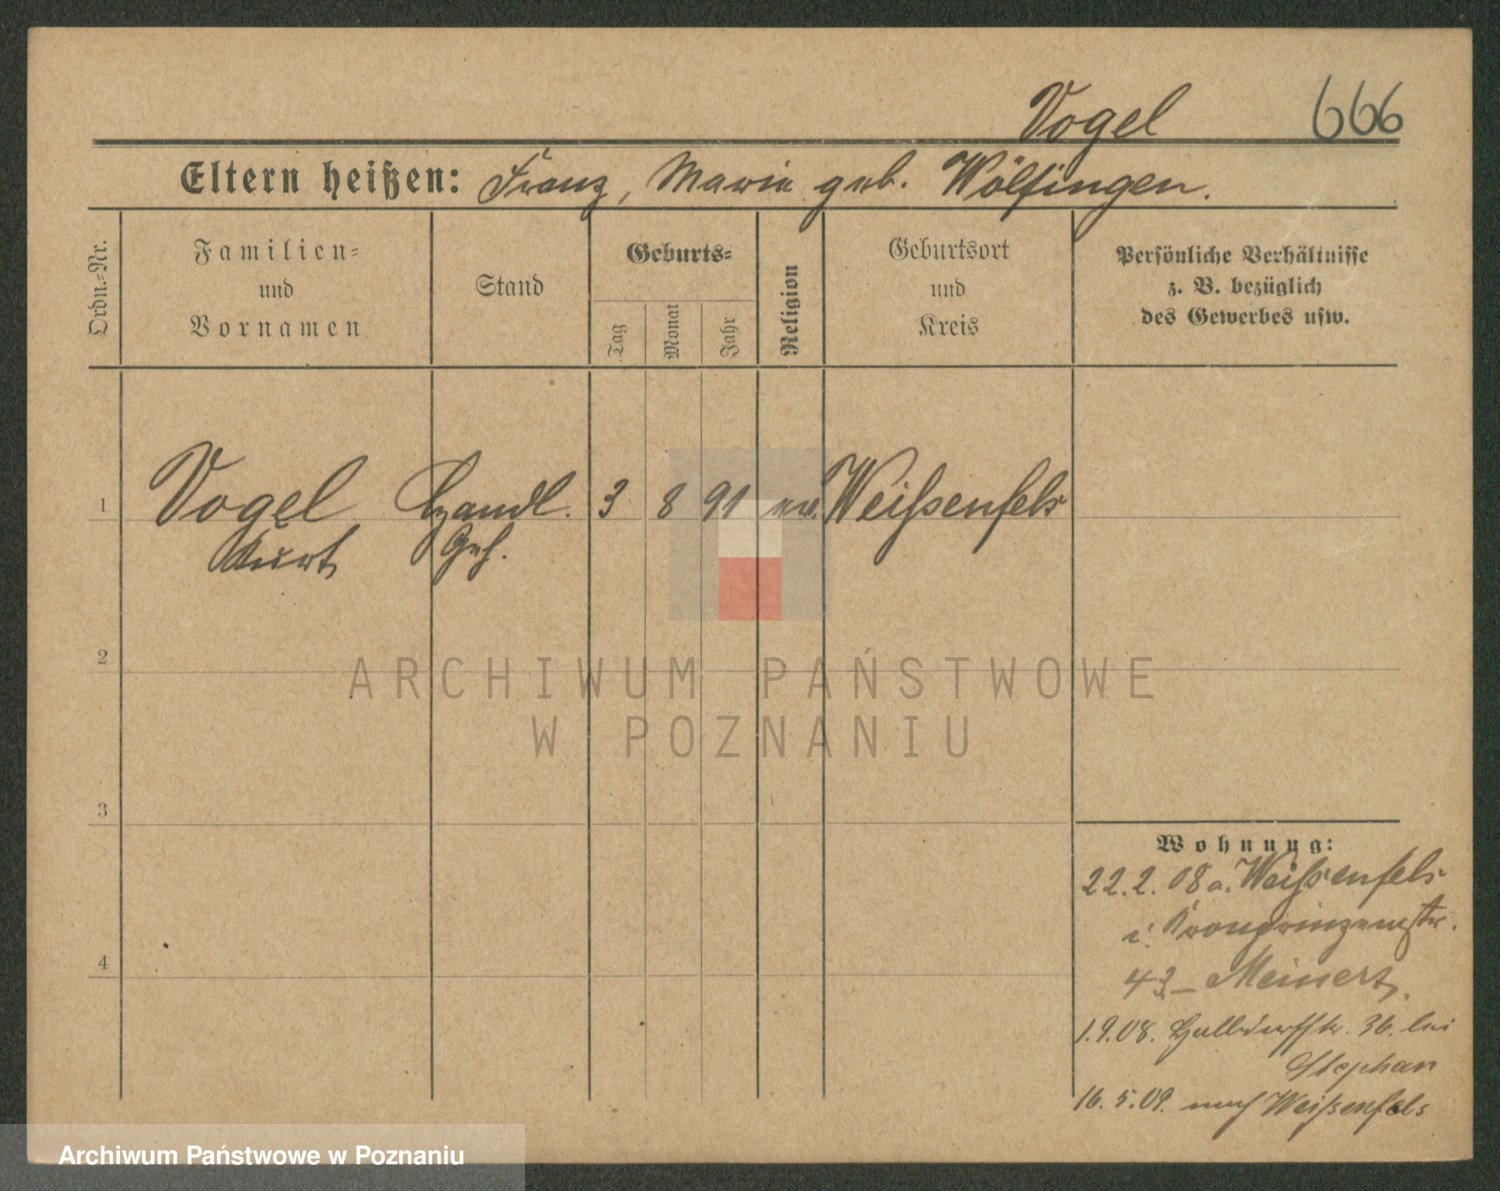 Vogel 666
Eltern heißen: Franz, Marie geb. Wölfingen.
Ordn.-Nr.
Familien-
und
Vornamen
Stand
Geburts-
Tag
Monat
Jahr
Religion
Geburtsort
und
Kreis
Persönliche Verhältnisse
z. B. bezüglich
des Gewerbes usw.
1 Vogel Handl. 3 8 91 ev. Weißenfels
Kurt Geh.
2
3
4
Wohnung:
22.2.08 a. Weißenfels
i. Kronprinzenstr.
43 - Meinert,
1.9.08. 36. bei
Stephan
16.5.09. nach Weißenfels
ARCHIWUM PAŃSTWOWE
W POZNANIU
Archiwum Państwowe w Poznaniu